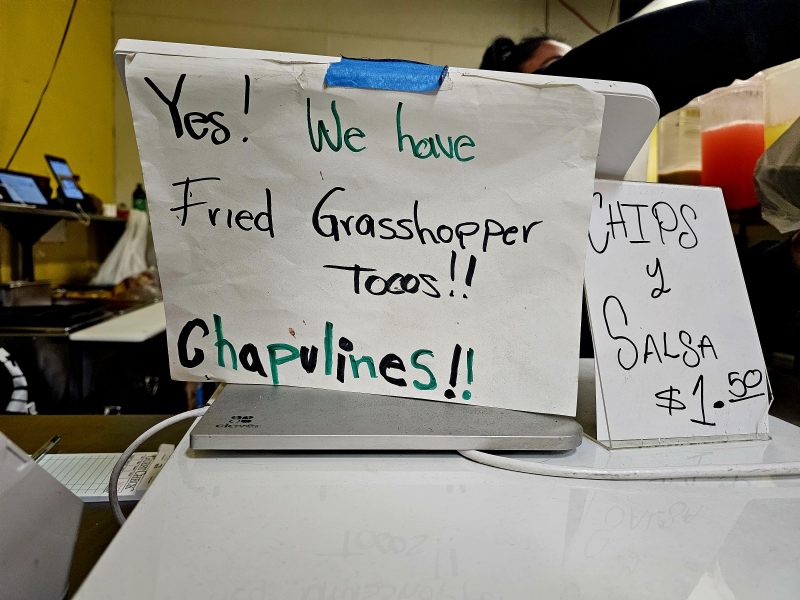 Yes! We have
Fried Grasshopper
Tacos!!
Chapulines!!
clover
CHIPS
y
SALSA
$1.50